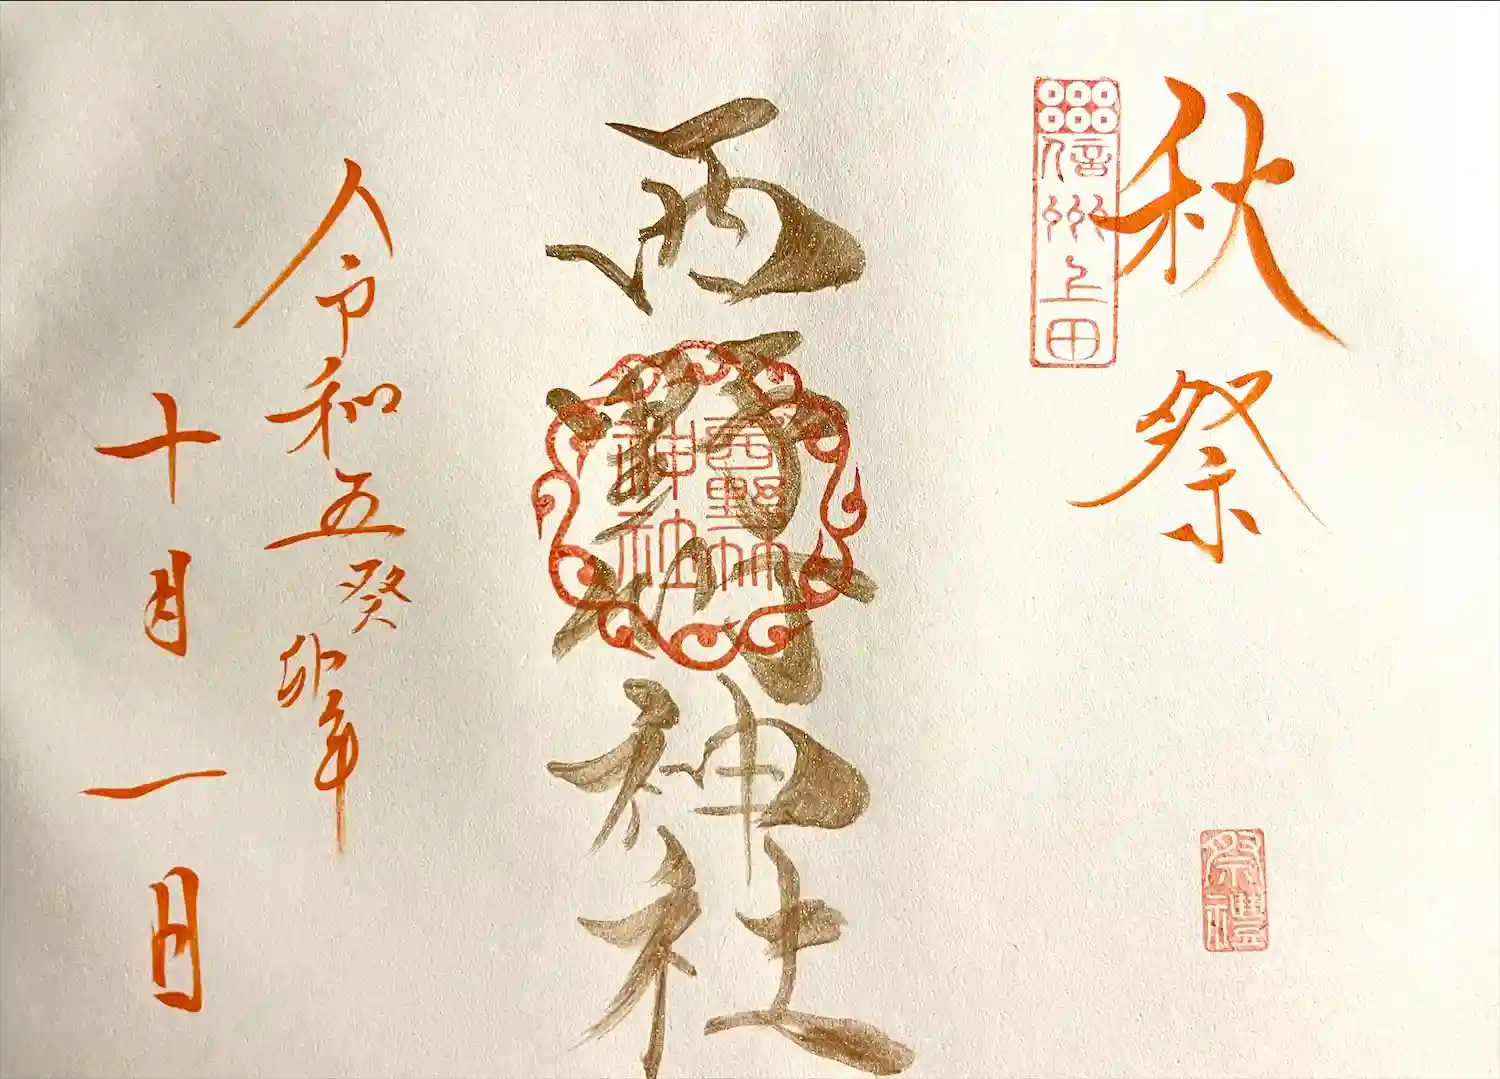 秋祭
信州上田
祭禮
西野竹神社
西野竹
神社
令和五癸卯年
十月一日